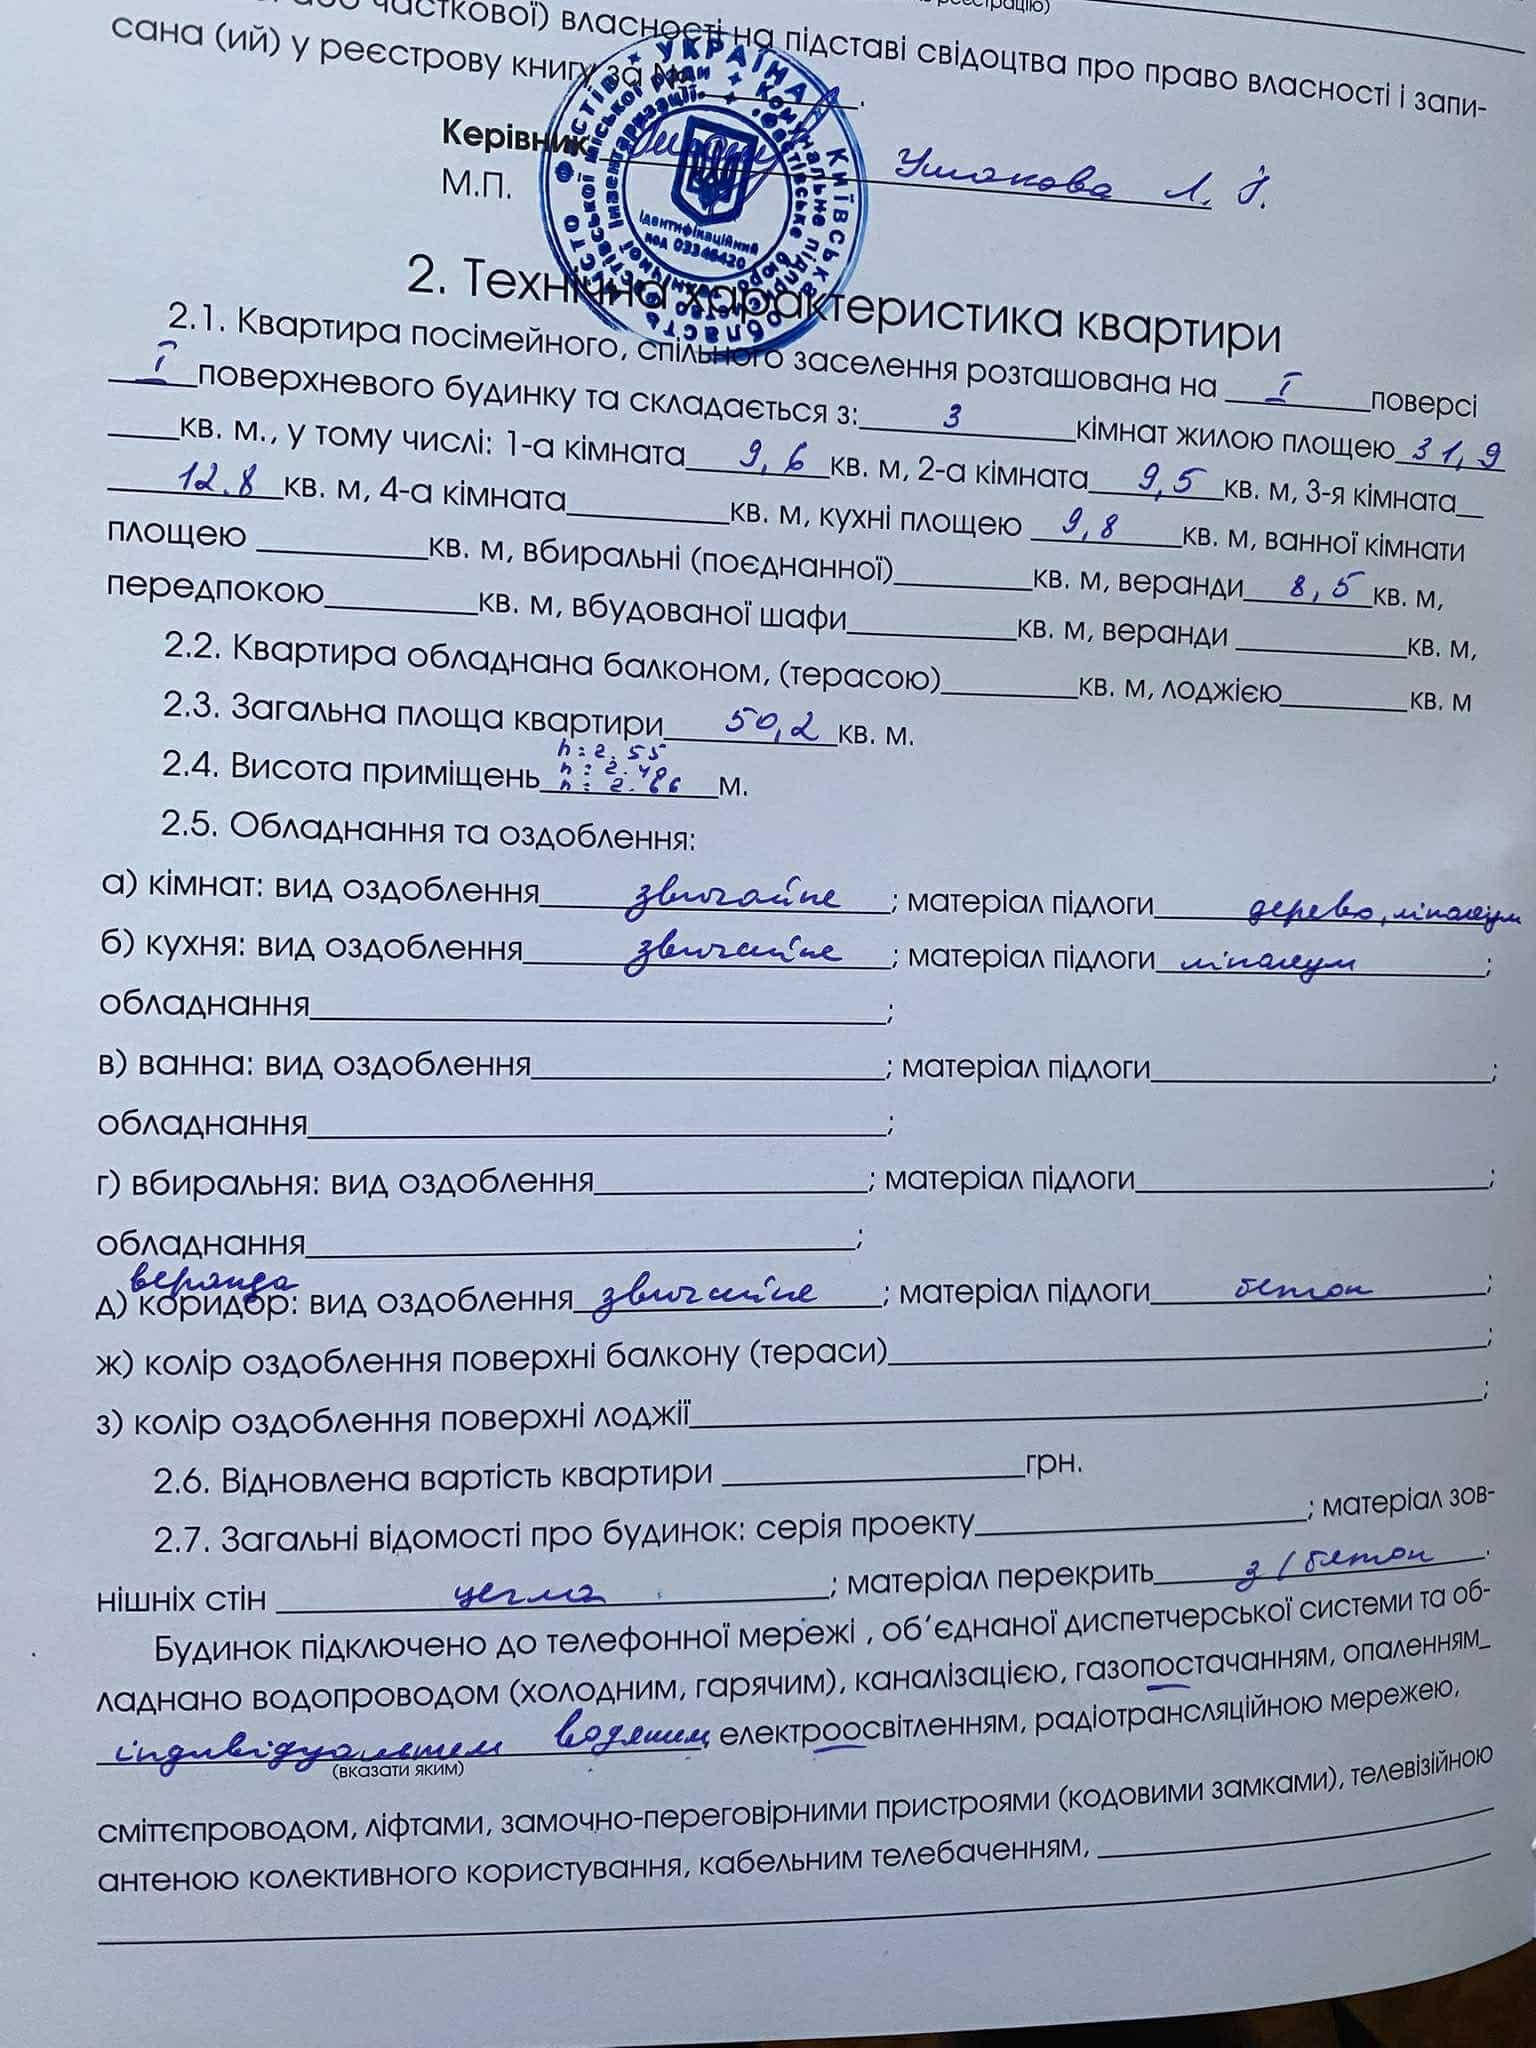 часткової) власності на підставі свідоцтва про право власності і запи-
сана (ий) у реєстрову книгу за №.
Керівник Ушакова Л. І.
М.П.
УКРАЇНА КИЇВСЬКА ОБЛАСТЬ МІСТО ФАСТІВ
Комунальне підприємство Фастівської міської ради
"Фастівське бюро технічної інвентаризації"
Ідентифікаційний
код 03346420
2. Технічна характеристика квартири
2.1. Квартира посімейного, спільного заселення розташована на I поверсі
I поверхневого будинку та складається з: 3 кімнат жилою площею 31,9
кв. м., у тому числі: 1-а кімната 9,6 кв. м, 2-а кімната 9,5 кв. м, 3-я кімната
12.8 кв. м, 4-а кімната кв. м, кухні площею 9,8 кв. м, ванної кімнати
площею кв. м, вбиральні (поєднанної) кв. м, веранди 8,5 кв. м,
передпокою кв. м, вбудованої шафи кв. м, веранди кв. м,
2.2. Квартира обладнана балконом, (терасою) кв. м, лоджією кв. м
2.3. Загальна площа квартири 50,2 кв. м.
h = 2.55
2.4. Висота приміщень м.
2.5. Обладнання та оздоблення:
а) кімнат: вид оздоблення звичайне ; матеріал підлоги дерево, лінолеум
б) кухня: вид оздоблення звичайне ; матеріал підлоги лінолеум ;
обладнання ;
в) ванна: вид оздоблення ; матеріал підлоги ;
обладнання ;
г) вбиральня: вид оздоблення ; матеріал підлоги ;
обладнання ;
веранда
д) коридор: вид оздоблення звичайне ; матеріал підлоги бетон ;
ж) колір оздоблення поверхні балкону (тераси) ;
з) колір оздоблення поверхні лоджії ;
2.6. Відновлена вартість квартири грн.
2.7. Загальні відомості про будинок: серія проекту ; матеріал зов-
нішніх стін цегла ; матеріал перекрить з/бетон .
Будинок підключено до телефонної мережі , об'єднаної диспетчерської системи та об-
ладнано водопроводом (холодним, гарячим), каналізацією, газопостачанням, опаленням
індивідуальним водяним, електроосвітленням, радіотрансляційною мережею,
(вказати яким)
сміттєпроводом, ліфтами, замочно-переговірними пристроями (кодовими замками), телевізійною
антеною колективного користування, кабельним телебаченням,